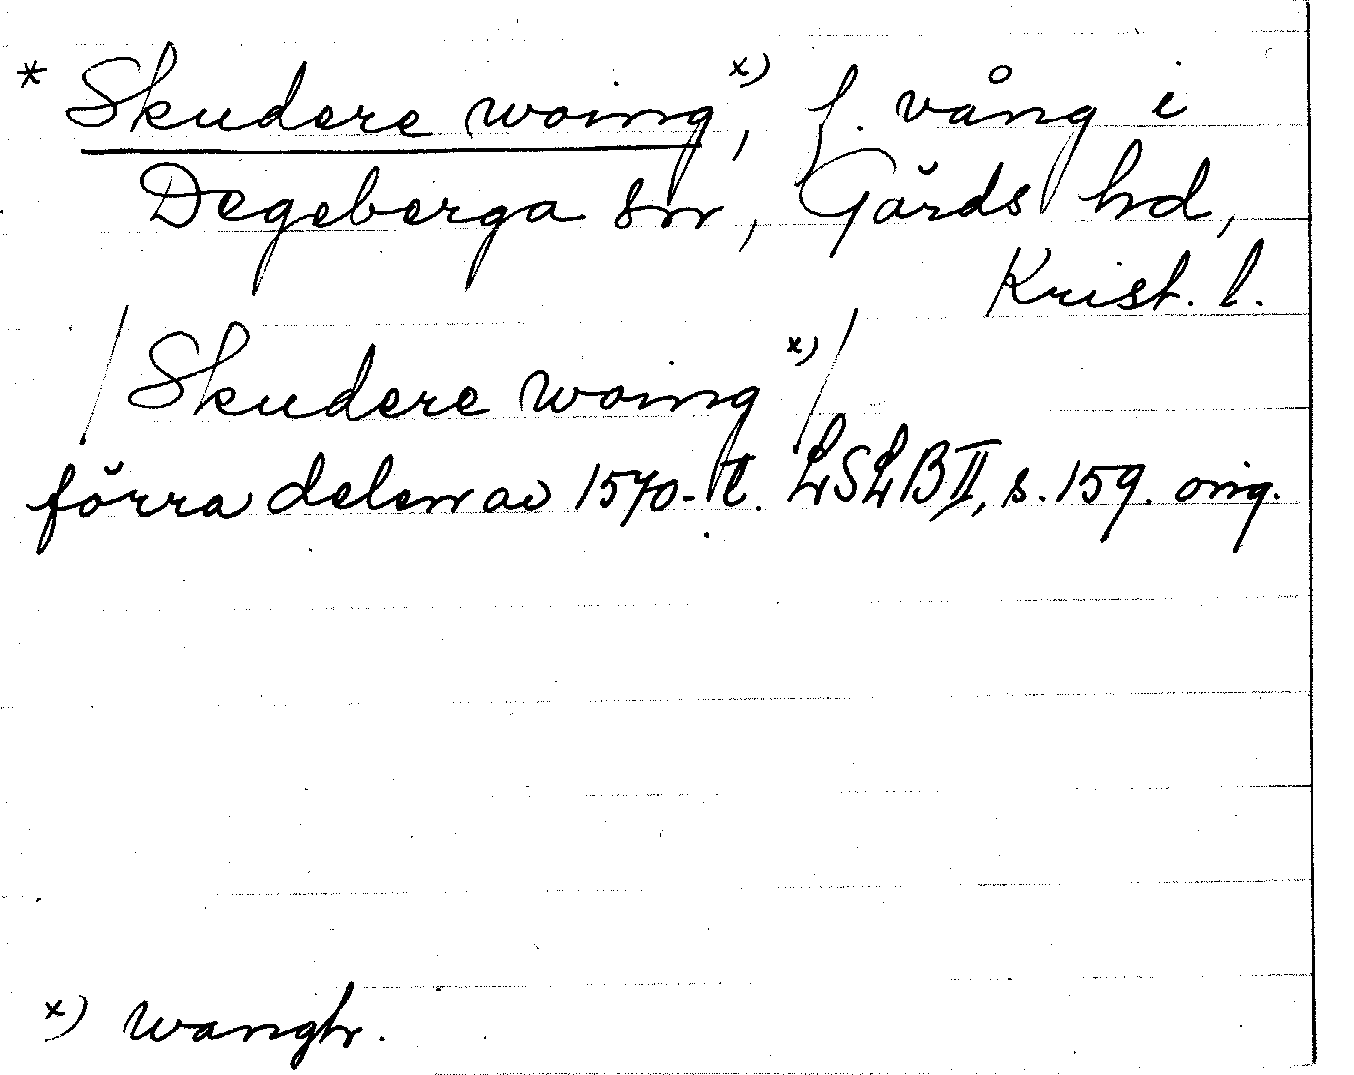 * Skudere waing x), f. vång i
Degeberga sn, Gärds hd,
Krist. l.
/Skudere waing x)/
förra delen av 1570-t. LSLB II, s. 159. orig.
x) wangh.